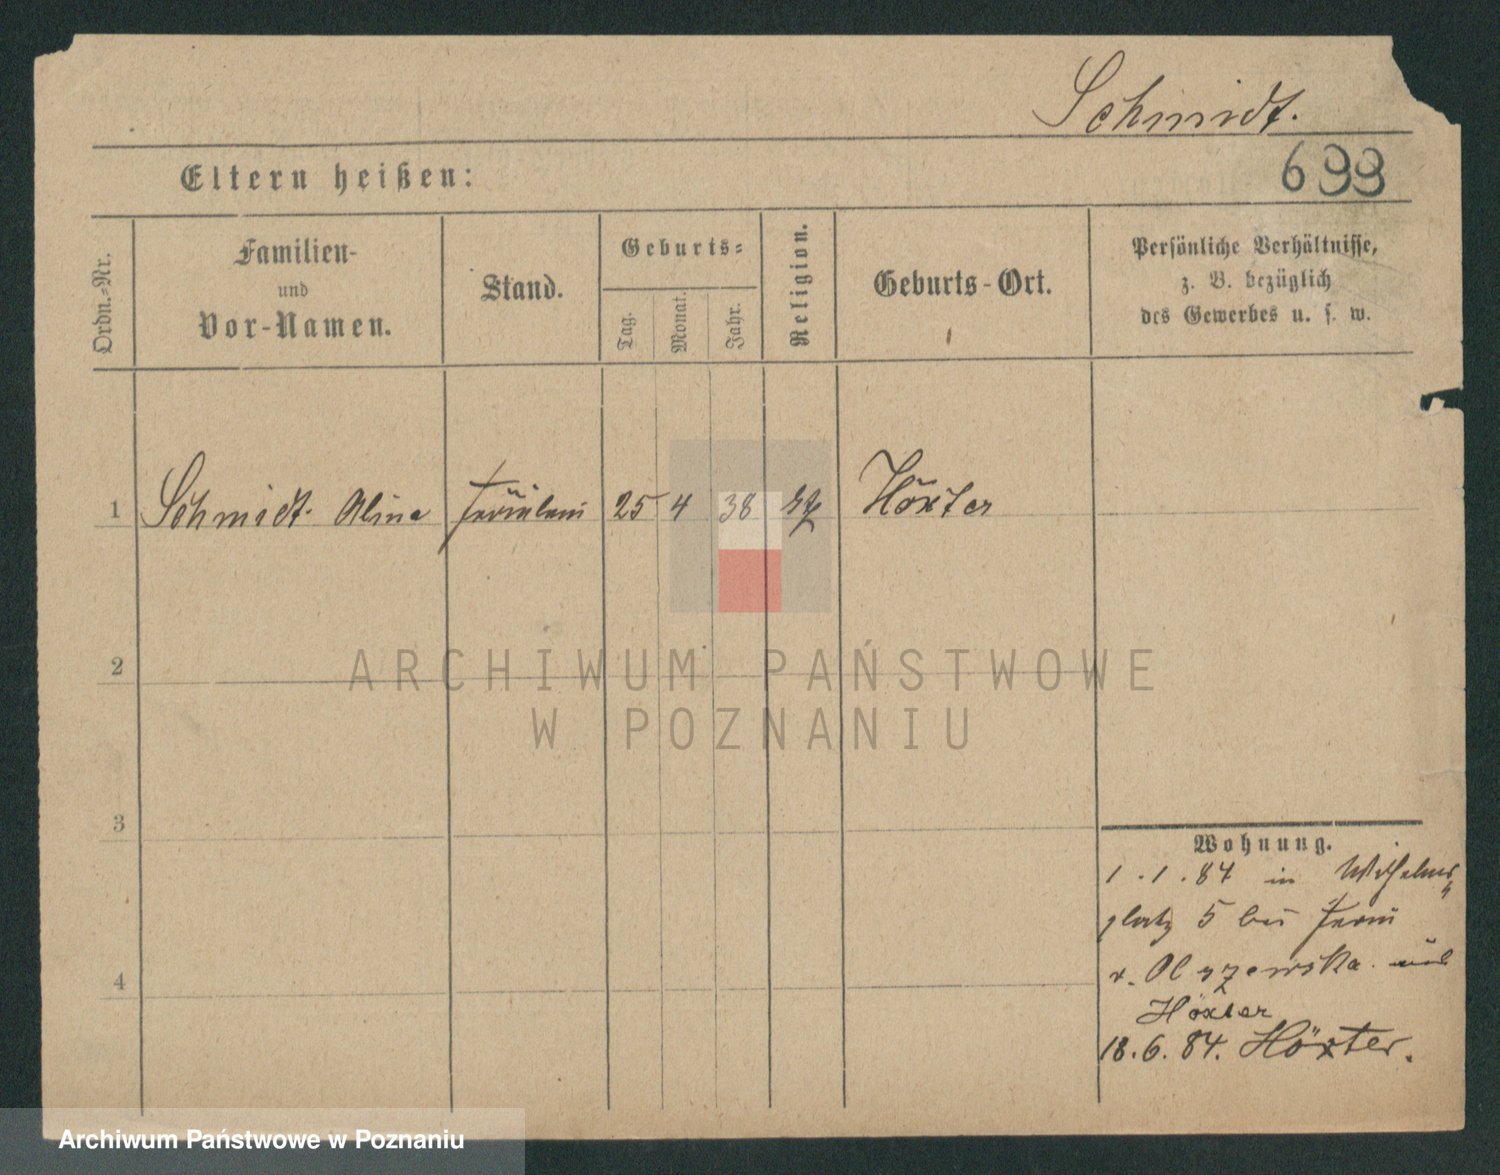 Schmidt.
699
Eltern heißen:
Ordn.-Nr.
Familien-
und
Vor-Namen.
Stand.
Geburts-
Tag.
Monat.
Jahr.
Religion.
Geburts-Ort.
Persönliche Verhältnisse,
z. B. bezüglich
des Gewerbes u. s. w.
1 Schmidt Alina Fräulein 25 4 38 Höxter
2
3
4
ARCHIWUM PAŃSTWOWE
W POZNANIU
Wohnung.
1.1.84 in Wilhelms
platz 5 bei Frau
v. Olszewska aus
Höxter
18.6.84. Höxter.
Archiwum Państwowe w Poznaniu